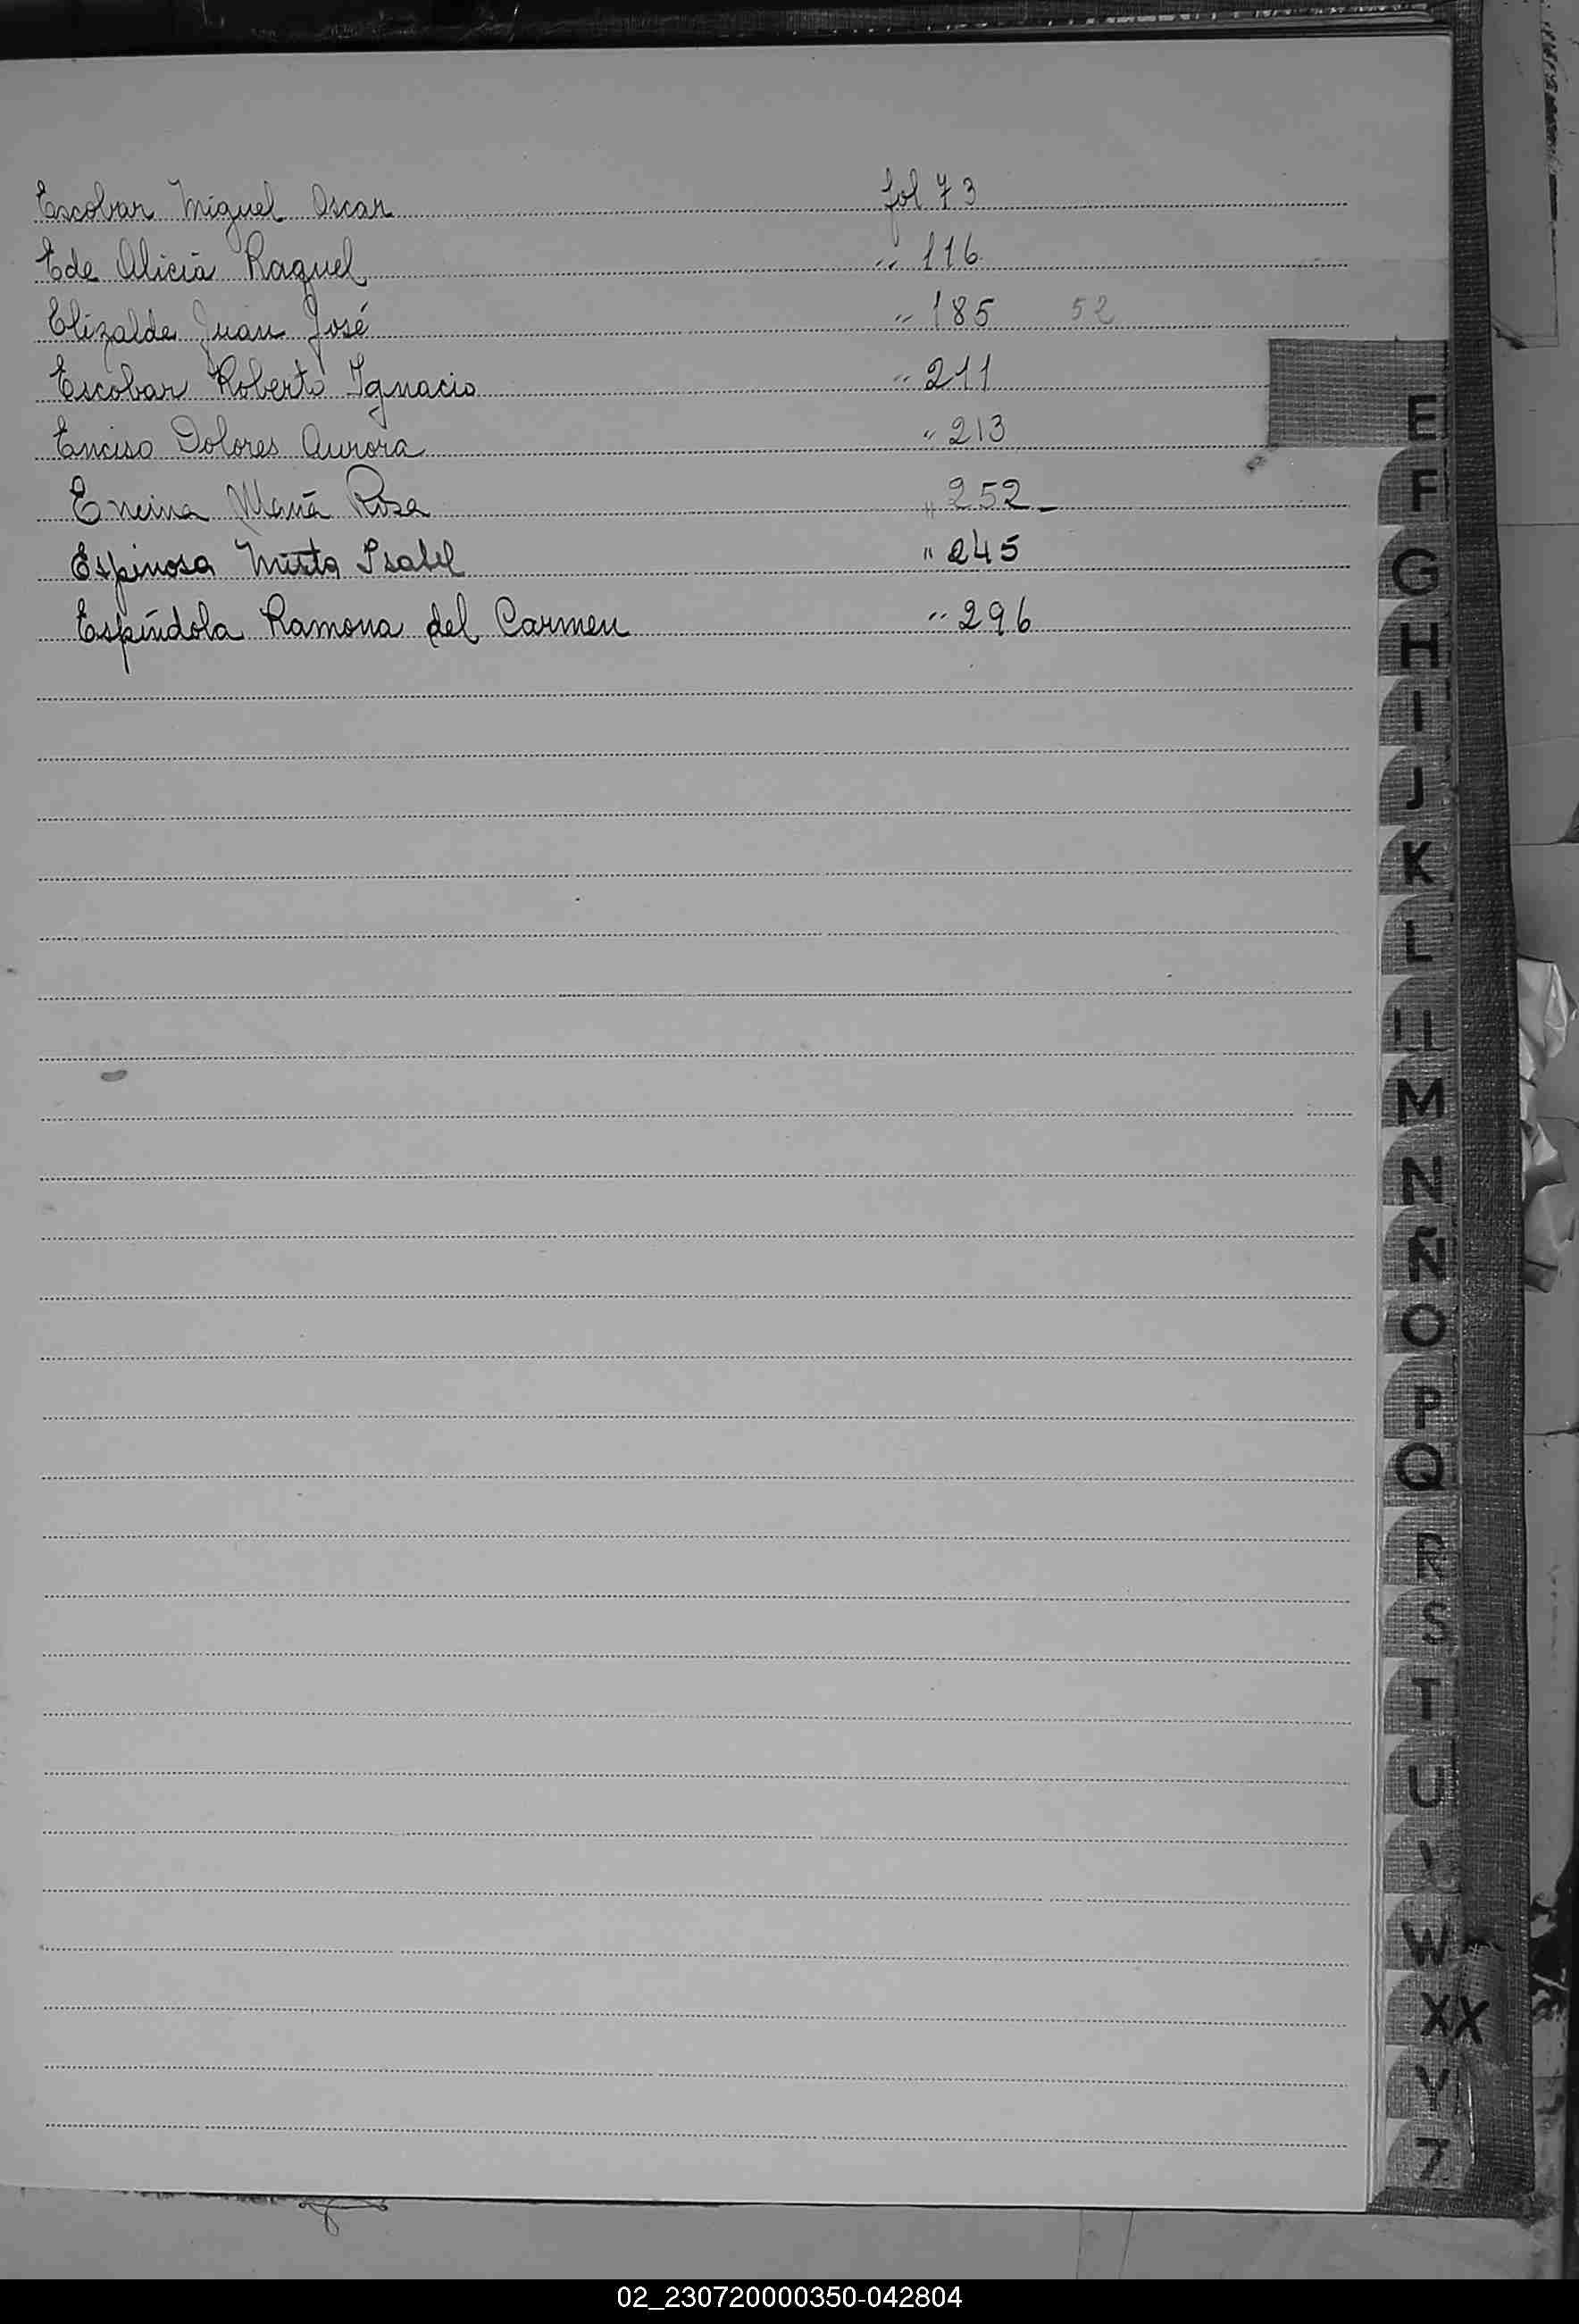 Escobar Miguel Oscar fol 73
Ede Alicia Raquel " 116
Elizalde Juan José " 185 52
Escobar Roberto Ignacio " 211
Enciso Dolores Aurora " 213
Encina María Rosa " 252_
Espinosa Mirta Isabel " 245
Espíndola Ramona del Carmen " 296
E
F
G
H
I
J
K
L
Ll
M
N
Ñ
O
P
Q
R
S
T
U
W
XX
Y
Z
02_230720000350-042804